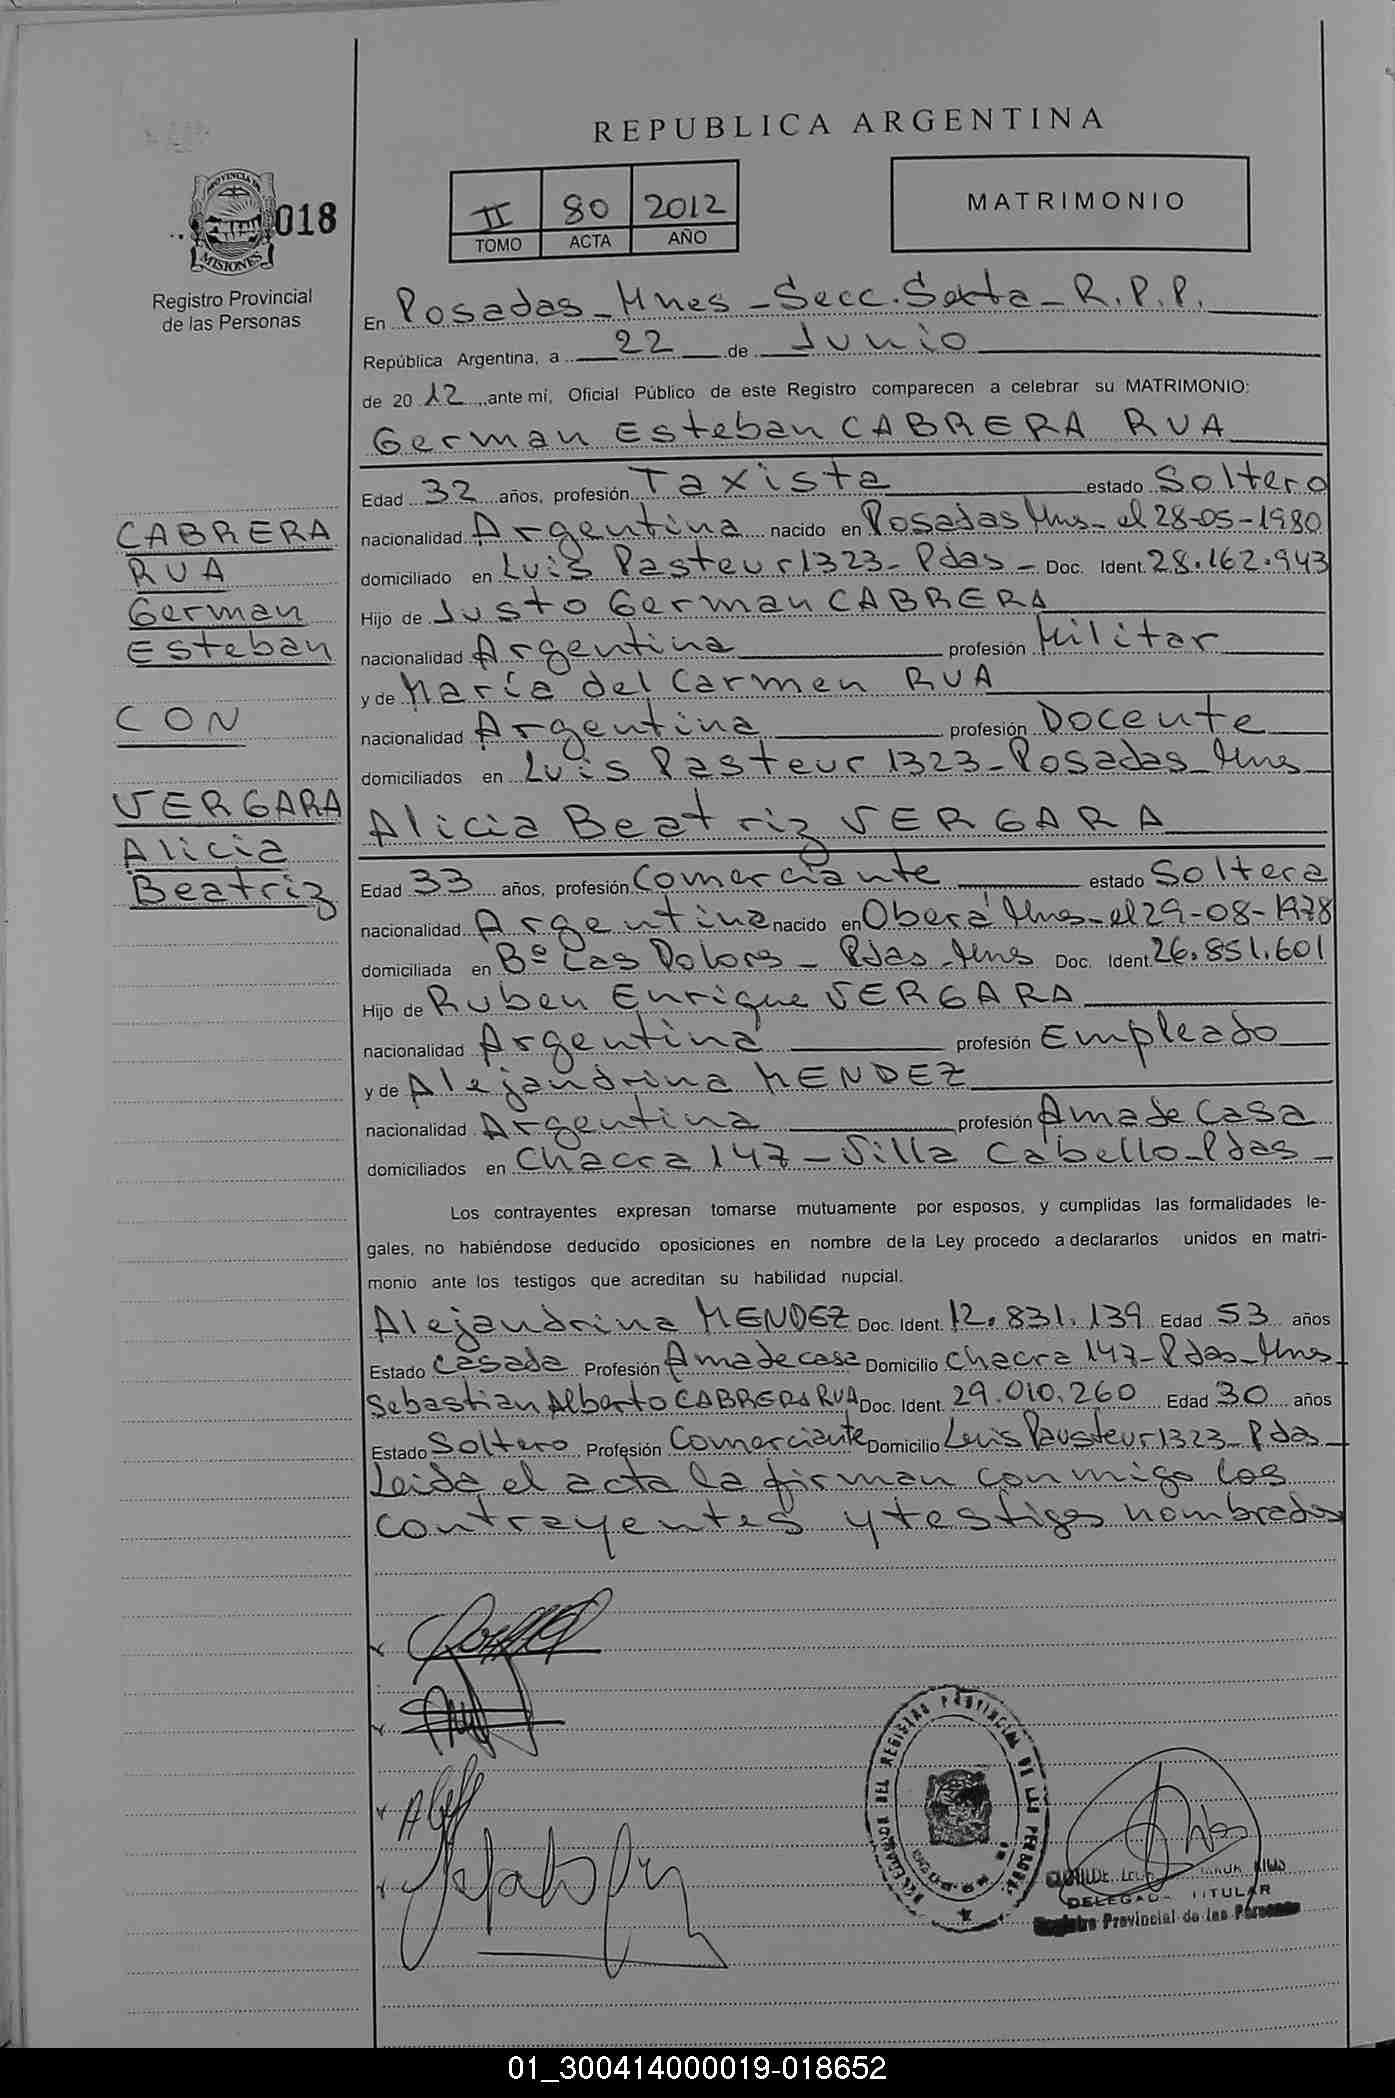 REPUBLICA ARGENTINA
PROVINCIA DE
MISIONES
018
Registro Provincial
de las Personas
II 80 2012
TOMO ACTA AÑO
MATRIMONIO
En Posadas - Mnes - Secc. Sexta - R.P.P.
República Argentina, a 22 de Junio
de 2012, ante mí, Oficial Público de este Registro comparecen a celebrar su MATRIMONIO:
German Esteban CABRERA RUA
Edad 32 años, profesión Taxista estado Soltero
nacionalidad Argentina nacido en Posadas Mns - el 28-05-1980
domiciliado en Luis Pasteur 1323 - Pdas - Doc. Ident. 28.162.943
Hijo de Justo German CABRERA
nacionalidad Argentina profesión Militar
y de María del Carmen RUA
nacionalidad Argentina profesión Docente
domiciliados en Luis Pasteur 1323 - Posadas - Mns
Alicia Beatriz VERGARA
Edad 33 años, profesión Comerciante estado Soltera
nacionalidad Argentina nacido en Oberá Mns - el 29-08-1978
domiciliada en Bº Las Dolores - Pdas - Mns Doc. Ident. 26.851.601
Hijo de Ruben Enrique VERGARA
nacionalidad Argentina profesión Empleado
y de Alejandrina MENDEZ
nacionalidad Argentina profesión Ama de Casa
domiciliados en Chacra 147 - Villa Cabello - Pdas -
CABRERA
RUA
German
Esteban
CON
VERGARA
Alicia
Beatriz
Los contrayentes expresan tomarse mutuamente por esposos, y cumplidas las formalidades le-
gales, no habiéndose deducido oposiciones en nombre de la Ley procedo a declararlos unidos en matri-
monio ante los testigos que acreditan su habilidad nupcial.
Alejandrina MENDEZ Doc. Ident. 12.831.139 Edad 53 años
Estado Casada Profesión Ama de casa Domicilio Chacra 147 - Pdas - Mns
Sebastian Alberto CABRERA RUA Doc. Ident. 29.010.260 Edad 30 años
Estado Soltero Profesión Comerciante Domicilio Luis Pausteur 1323 - Pdas -
Leida el acta la firman conmigo los
contrayentes y testigos nombrados
REGISTRO PROVINCIAL DE LAS PERSONAS
TITULAR
Registro Provincial de las Personas
01_300414000019-018652